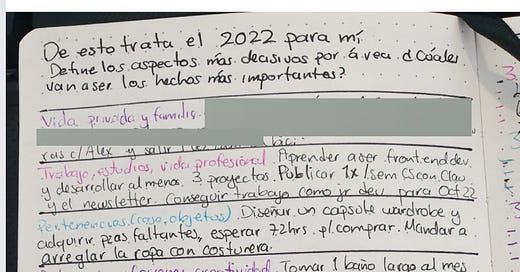 De esto trata el 2022 para mí
Define los aspectos más decisivos por área ¿Cúales
van a ser los hechos más importantes?
Vida privada y familia.
c/Alex y salir
Trabajo, estudios, vida profesional. Aprender a ser frontend dev.
y desarrollar al menos 3 proyectos. Publicar 1x/sem CS con Clau
y el newsletter. Conseguir trabajo como jr dev para Oct 22
Pertenencias (casa, objetos). Diseñar un capsule wardrobe y
adquirir pzas. faltantes, esperar 72hrs. p/. comprar. Mandar a
arreglar la ropa con costurera.
Tomar 1 baño largo al mes